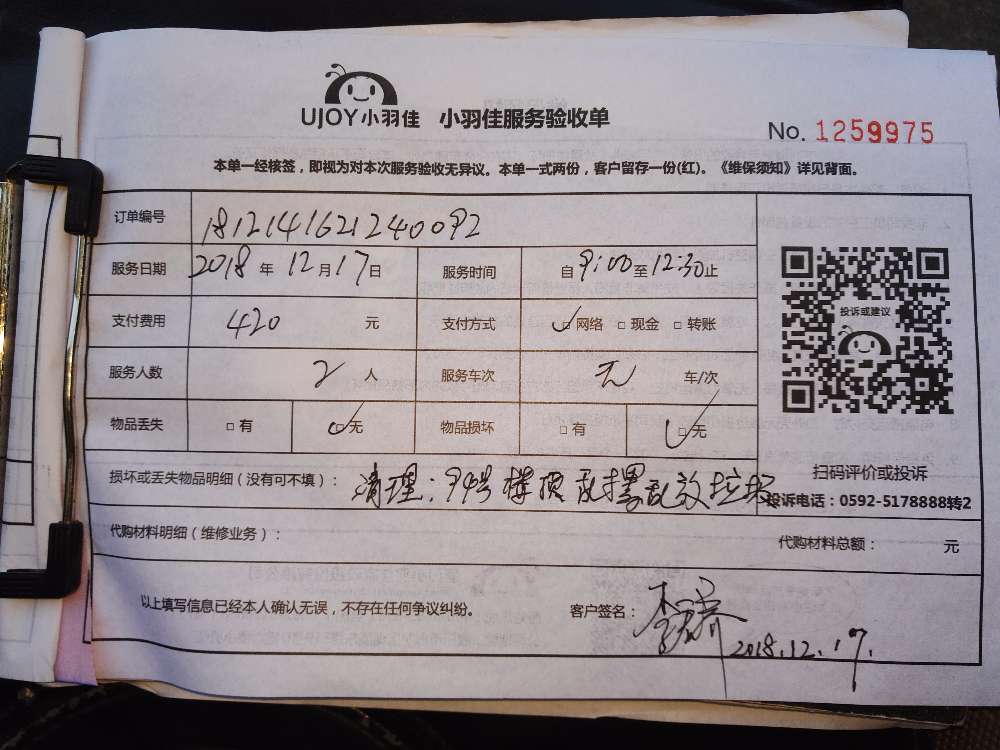 UJOY小羽佳 小羽佳服务验收单
No. 1259975
本单一经核签，即视为对本次服务验收无异议。本单一式两份，客户留存一份(红)。《维保须知》详见背面。
订单编号 1812141621240092
服务日期 2018 年 12 月 17 日 服务时间 自 9:00 至 12:30 止
投诉或建议
支付费用 420 元 支付方式 □ 网络 □ 现金 □ 转账
服务人数 2 人 服务车次 无 车/次
物品丢失 □ 有 □ 无 物品损坏 □ 有 □ 无
扫码评价或投诉
损坏或丢失物品明细（没有可不填）： 清理：94号楼顶乱摆乱放垃圾
投诉电话：0592-5178888转2
代购材料明细（维修业务）： 代购材料总额： 元
以上填写信息已经本人确认无误，不存在任何争议纠纷。 客户签名： 李 2018.12.17.